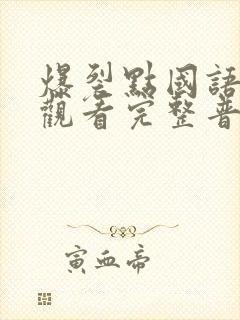 爆裂點國語
觀看完整普
寅血帝